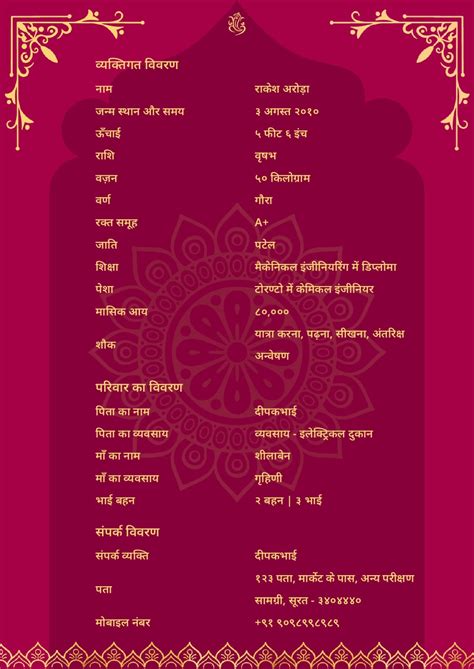 व्यक्तिगत विवरण
नाम राकेश अरोड़ा
जन्म स्थान और समय ३ अगस्त २०१०
ऊँचाई ५ फीट ६ इंच
राशि वृषभ
वज़न ५० किलोग्राम
वर्ण गौरा
रक्त समूह A+
जाति पटेल
शिक्षा मैकेनिकल इंजीनियरिंग में डिप्लोमा
पेशा टोरण्टो में केमिकल इंजीनियर
मासिक आय ८०,०००
शौक यात्रा करना, पढ़ना, सीखना, अंतरिक्ष
अन्वेषण
परिवार का विवरण
पिता का नाम दीपकभाई
पिता का व्यवसाय व्यवसाय - इलेक्ट्रिकल दुकान
माँ का नाम शीलाबेन
माँ का व्यवसाय गृहिणी
भाई बहन २ बहन | ३ भाई
संपर्क विवरण
संपर्क व्यक्ति दीपकभाई
पता १२३ पता, मार्केट के पास, अन्य परीक्षण
सामग्री, सूरत - ३४०४४४०
मोबाइल नंबर +९१ ९०९८९९८९८९